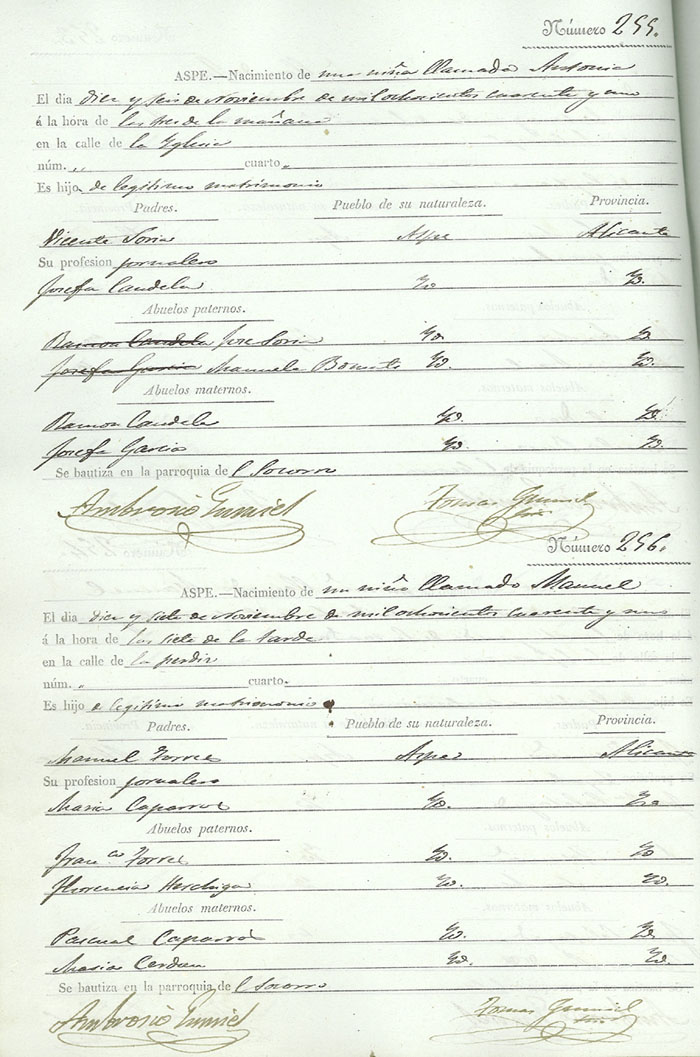 Número 255.
ASPE.—Nacimiento de una niña llamada Antonia
El dia diez y seis de Noviembre de mil ochocientos cuarenta y uno
á la hora de las tres de la mañana
en la calle de la Yglesia
núm. „ cuarto „
Es hijo de legitimo matrimonio
Padres. Pueblo de su naturaleza. Provincia.
Vicente Soria Aspe Alicante
Su profesion jornalero
Josefa Candela Yd. Yd.
Abuelos paternos.
Ramon Candela Jose Soria Yd. Yd.
Josefa Garcia Manuela Yd. Yd.
Abuelos maternos.
Ramon Candela Yd. Yd.
Josefa Garcia Yd. Yd.
Se bautiza en la parroquia de l Socorro
Ambrosio Gumiel Tomas Gumiel
Número 256.
ASPE.—Nacimiento de un niño llamado Manuel
El dia diez y siete de Noviembre de mil ochocientos cuarenta y uno
á la hora de las siete de la tarde
en la calle de la perdiz
núm. „ cuarto.
Es hijo e legitimo matrimonio
Padres. Pueblo de su naturaleza. Provincia.
Manuel Torres Aspe Alicante
Su profesion jornalero
Maria Caparros Yd. Yd.
Abuelos paternos.
Fran.co Torres Yd. Yd.
Florencia Yd. Yd.
Abuelos maternos.
Pascual Caparrós Yd. Yd.
Maria Cerdan Yd. Yd.
Se bautiza en la parroquia de l Socorro
Ambrosio Gumiel Tomas Gumiel